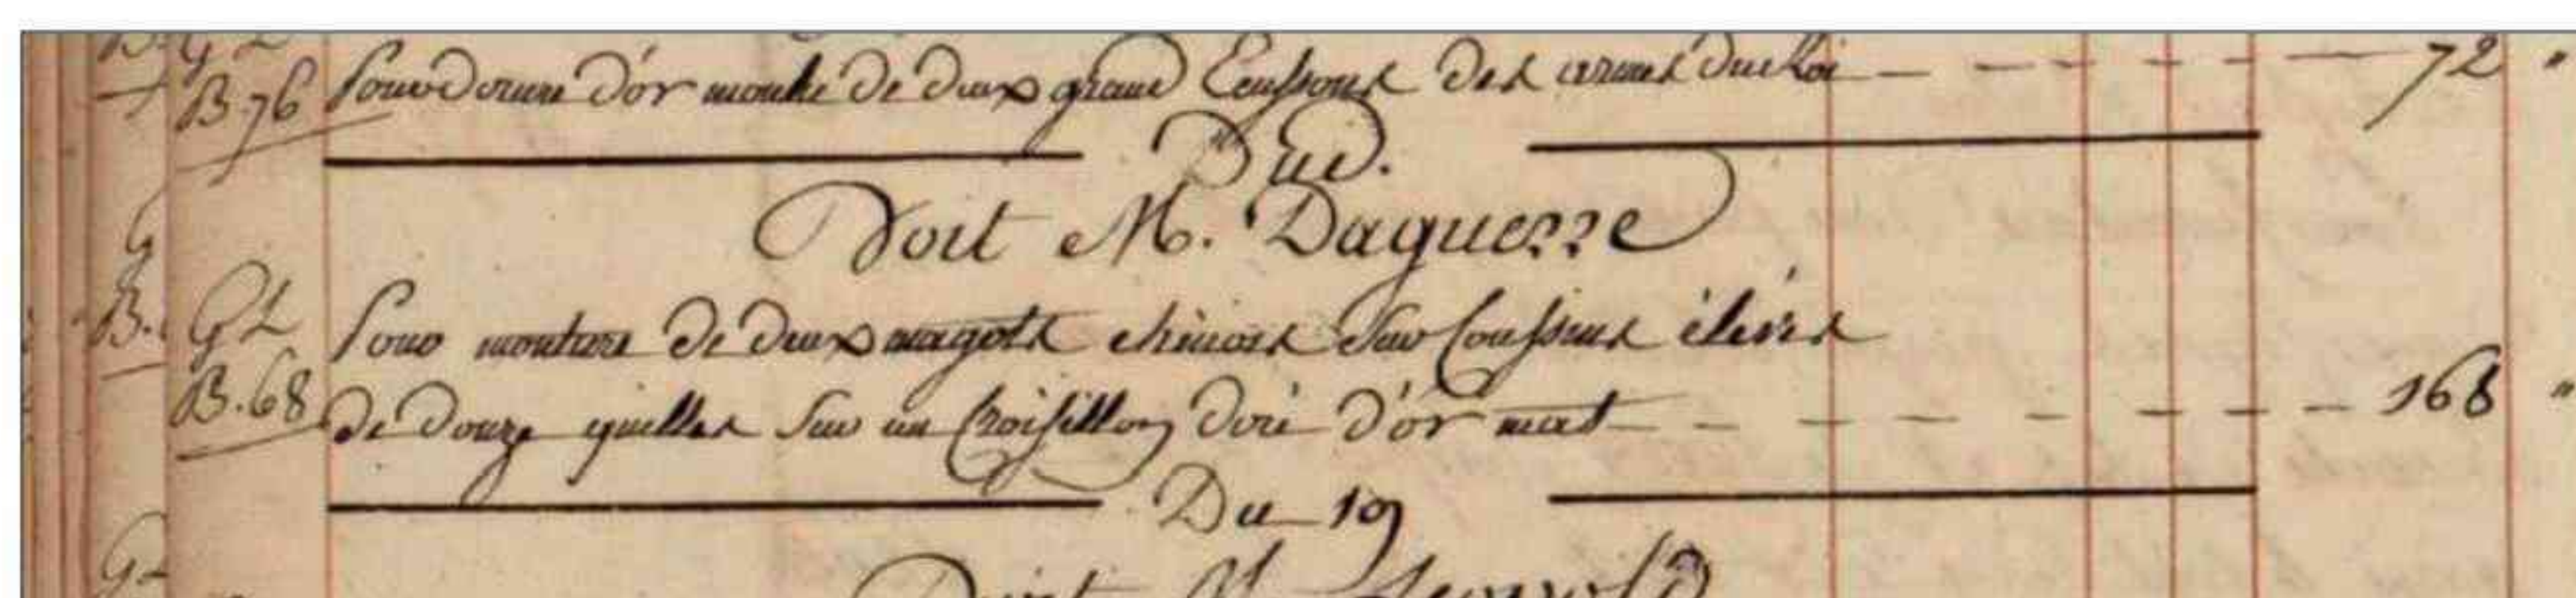 G L
B. 76 Pour dorure d'or moulu de deux grand Ecussons des armes du Roi 72 "
Dud.
Doit M. Daguerre
G
B.
G L Pour monture de deux magots chinois sur Coussins élevés
B. 68 de douze quilles sur un Croisillon doré d'or mat 168 "
Du 19
Doit M.